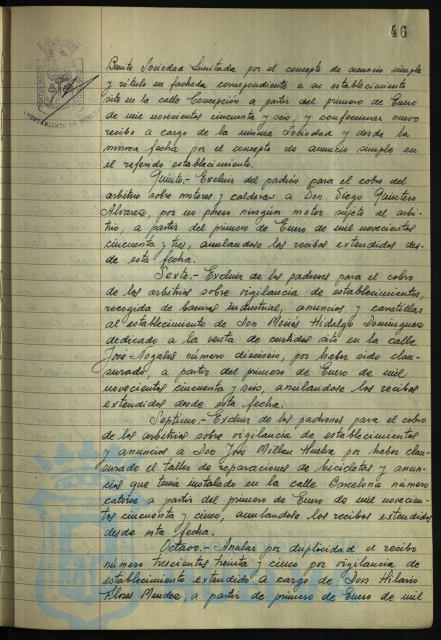 46
Benito Sociedad Limitada por el concepto de anuncio simple
y rótulo en fachada correspondiente a su establecimiento
sito en la calle Concepción a partir del primero de Enero
de mil novecientos cincuenta y seis, y confeccionar nuevo
recibo a cargo de la misma Sociedad y desde la
misma fecha por el concepto de anuncio simple en
el referido establecimiento.
Quinto.- Excluir del padrón para el cobro del
arbitrio sobre motores y calderas a Don Diego Quintero
Alvarez, por no poseer ningún motor sujeto al arbi-
trio, a partir del primero de Enero de mil novecientos
cincuenta y tres, anulandose los recibos extendidos des-
de esta fecha.
Sexto.- Excluir de los padrones para el cobro
de los arbitrios sobre vigilancia de establecimientos,
recogida de basuras industrial, anuncios y carretillas
al establecimiento de Don Moisés Hidalgo Dominguez
dedicado a la venta de curtidos sito en la calle
José Nogales número dieciseis, por haber sido clau-
surado, a partir del primero de Enero de mil
novecientos cincuenta y seis, anulandose los recibos
extendidos desde esta fecha.
Septimo.- Excluir de los padrones para el cobro
de los arbitrios sobre vigilancia de establecimientos
y anuncios a Don José Millan Huelva por haber clau-
surado el taller de reparaciones de bicicletas y anun-
cios que tenia instalado en la calle Barcelona número
catorce a partir del primero de Enero de mil novecien-
tos cincuenta y cinco, anulandose los recibos extendidos
desde esta fecha.
Octavo.- Anular por duplicidad el recibo
número trescientos treinta y cinco por vigilancia de
establecimiento extendido a cargo de Don Hilario
Flores Mendez, a partir de primero de Enero de mil